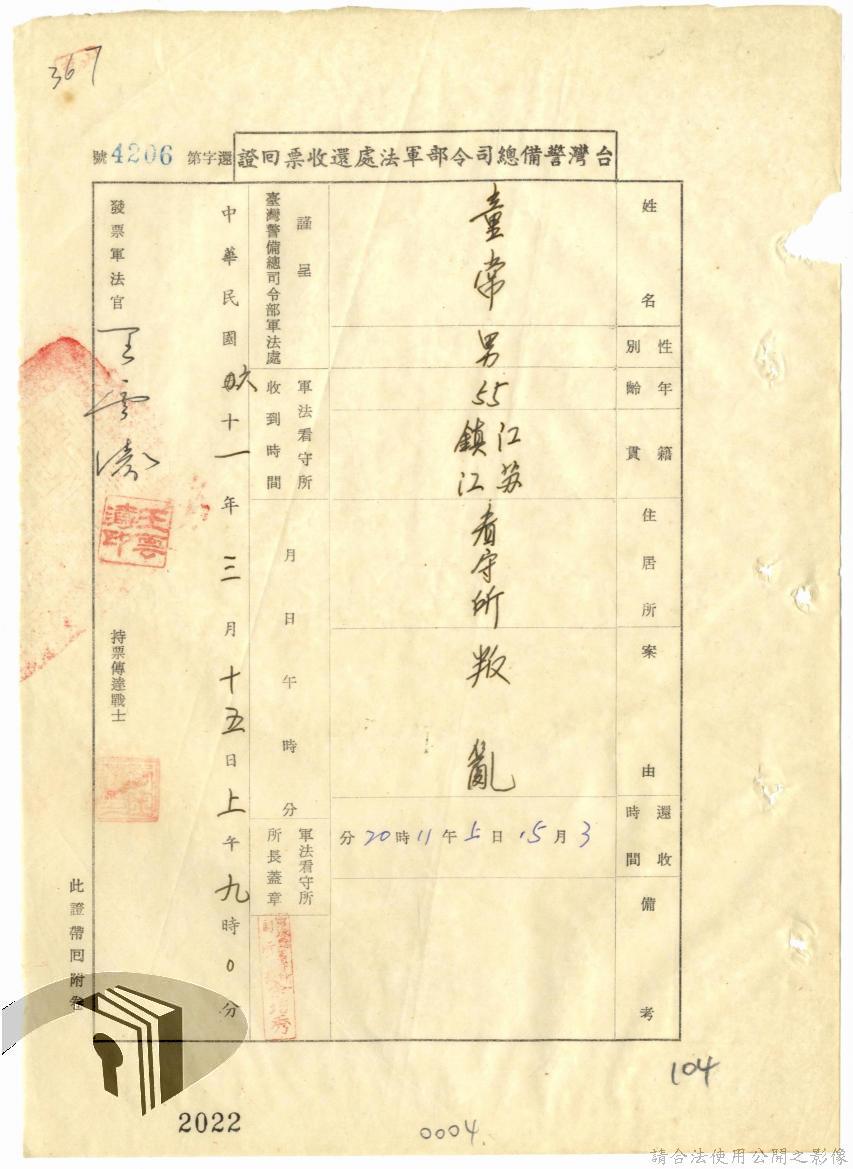 367
台灣警備總司令部軍法處還收票回證
還字第4206號
姓名
童常
性別
男
年齡
55
籍貫
江蘇
鎮江
住居所
看守所
案由
叛亂
還收時間
3月15日上午11時20分
備考
謹呈
臺灣警備總司令部軍法處
軍法看守所
收到時間
月日午時分
軍法看守所
所長蓋章
中華民國六十一年三月十五日上午九時0分
發票軍法官
王雲濤
王雲濤印
持票傳達戰士
此證帶回附卷
104
2022
0004.
請合法使用公開之影像